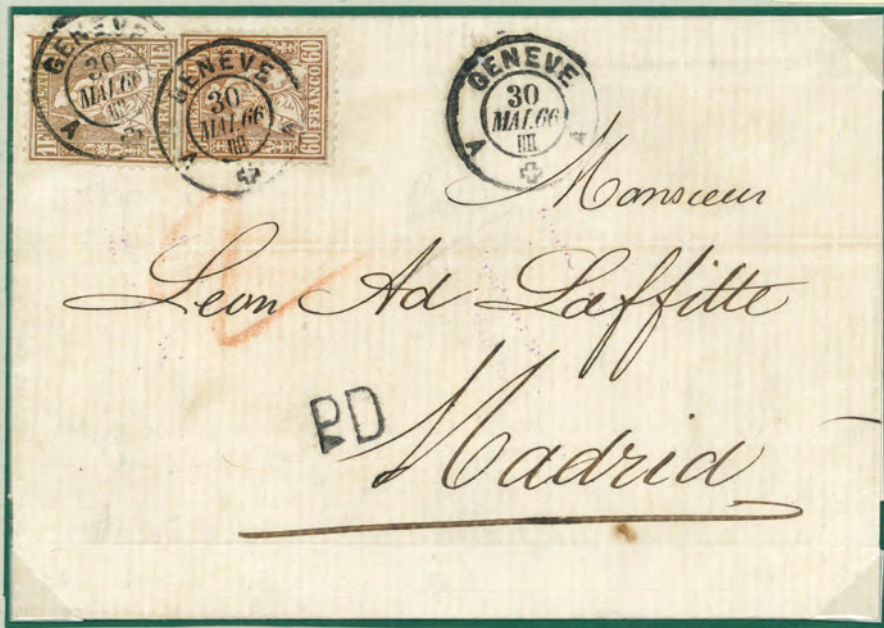 GENEVE
30
MAI.66
III
A
1F
FRANCO
GENEVE
30
MAI.66
III
A A
60
FRANCO
60
GENEVE
30
MAI.66
III
A A
Monsieur
Leon Ad Laffitte
PD
Madrid